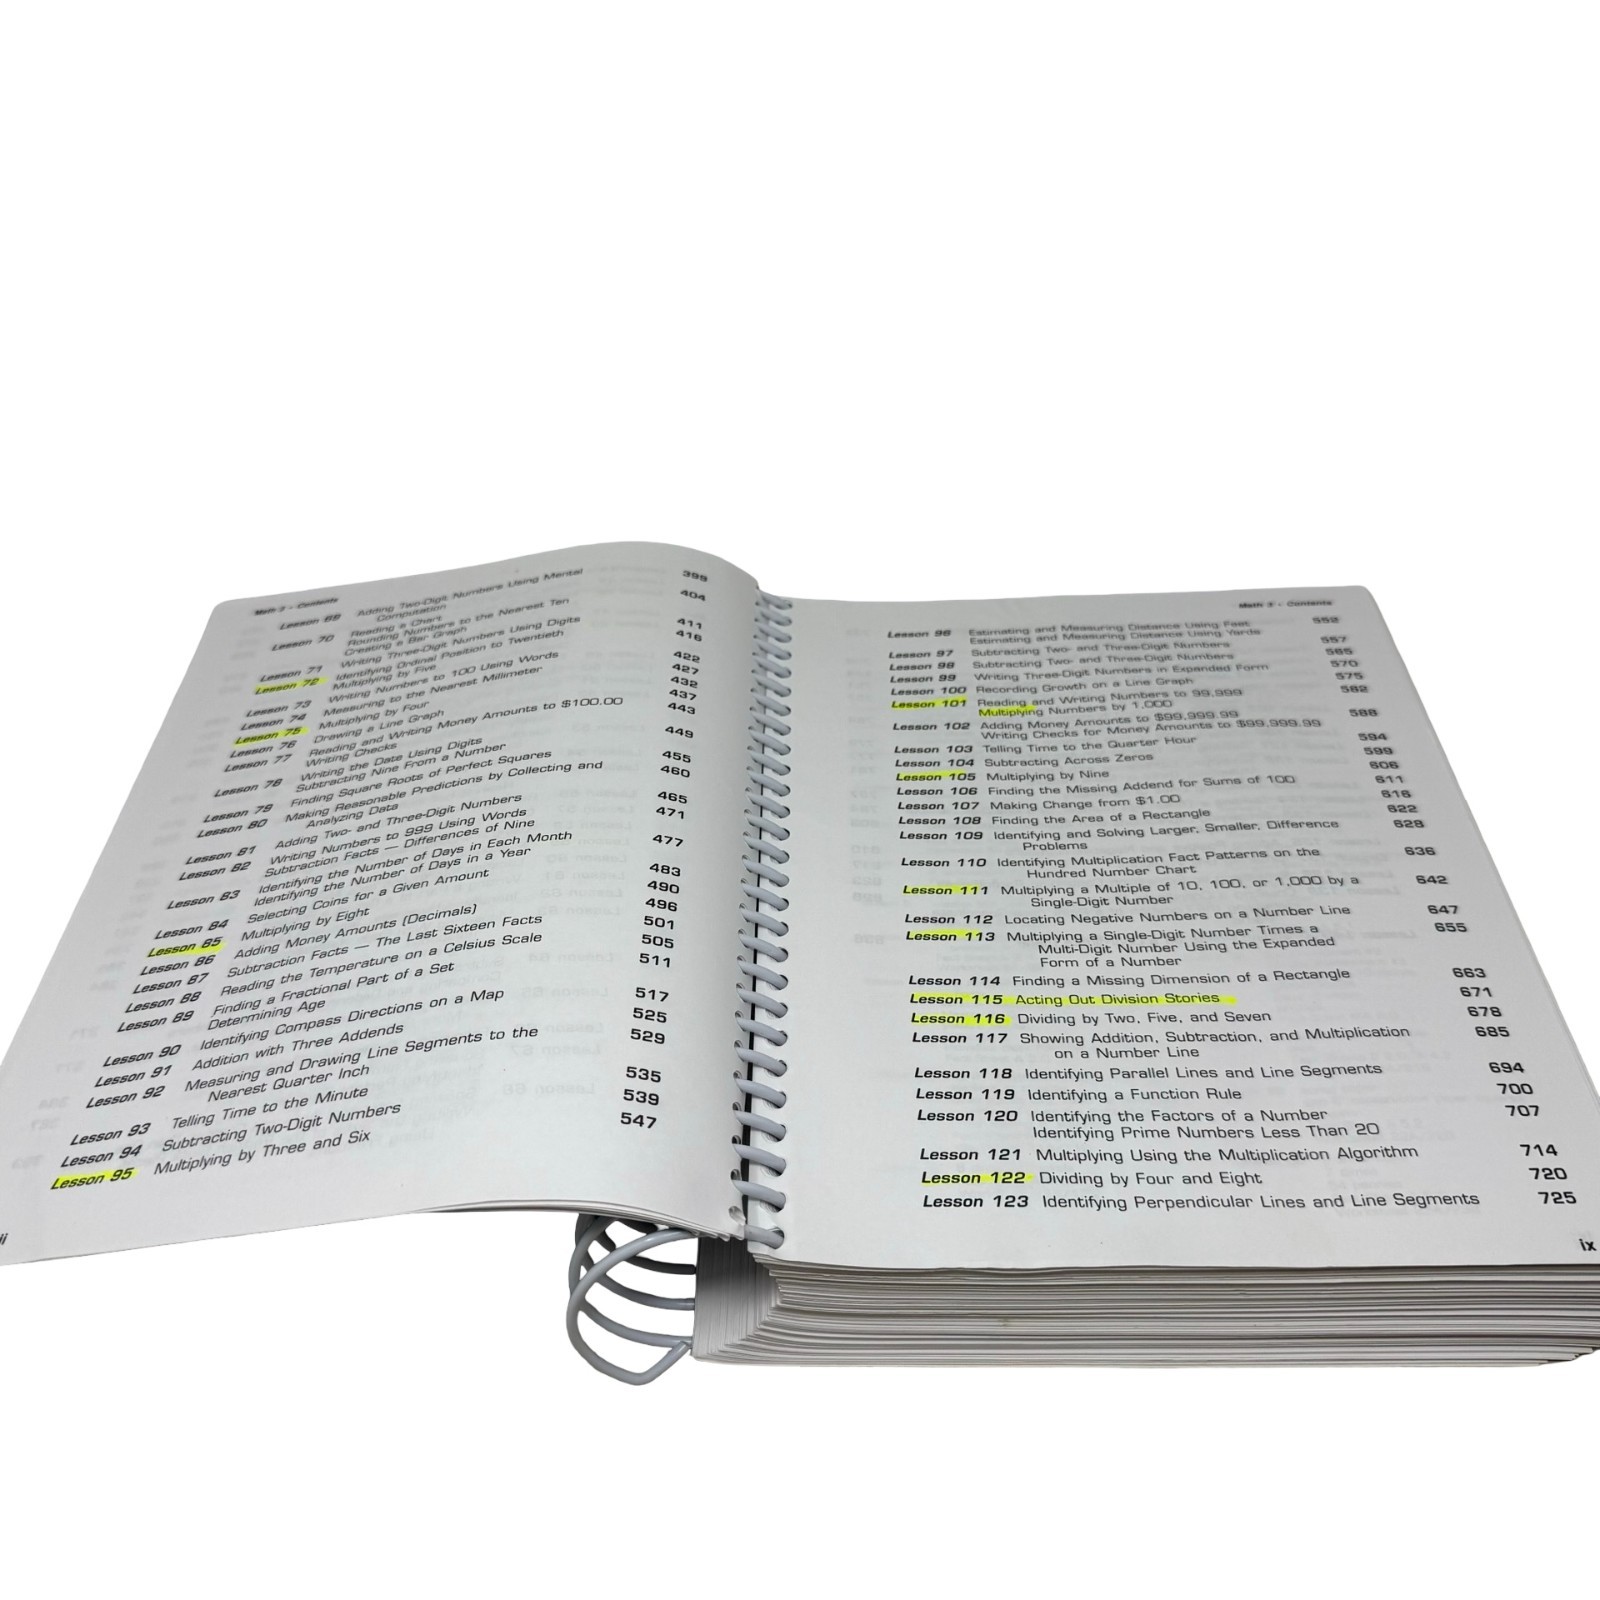 Math 3 - Contents
Lesson 69 Adding Two-Digit Numbers Using Mental 399
Computation
Lesson 70 Reading a Chart 404
Rounding Numbers to the Nearest Ten
Creating a Bar Graph
Lesson 71 Writing Three-Digit Numbers Using Digits 411
Identifying Ordinal Position to Twentieth
Lesson 72 Multiplying by Five 416
Lesson 73 Writing Numbers to 100 Using Words 422
Lesson 74 Measuring to the Nearest Millimeter 427
Lesson 75 Multiplying by Four 432
Lesson 76 Drawing a Line Graph 437
Lesson 77 Reading and Writing Money Amounts to $100.00 443
Writing Checks
Lesson 78 Writing the Date Using Digits 449
Subtracting Nine From a Number
Lesson 79 Finding Square Roots of Perfect Squares 455
Lesson 80 Making Reasonable Predictions by Collecting and 460
Analyzing Data
Lesson 81 Adding Two- and Three-Digit Numbers 465
Lesson 82 Writing Numbers to 999 Using Words 471
Subtraction Facts — Differences of Nine
Lesson 83 Identifying the Number of Days in Each Month 477
Identifying the Number of Days in a Year
Lesson 84 Selecting Coins for a Given Amount 483
Lesson 85 Multiplying by Eight 490
Lesson 86 Adding Money Amounts (Decimals) 496
Lesson 87 Subtraction Facts — The Last Sixteen Facts 501
Lesson 88 Reading the Temperature on a Celsius Scale 505
Lesson 89 Finding a Fractional Part of a Set 511
Determining Age
Lesson 90 Identifying Compass Directions on a Map 517
Lesson 91 Addition with Three Addends 525
Lesson 92 Measuring and Drawing Line Segments to the 529
Nearest Quarter Inch
Lesson 93 Telling Time to the Minute 535
Lesson 94 Subtracting Two-Digit Numbers 539
Lesson 95 Multiplying by Three and Six 547
Math 3 - Contents
Lesson 96 Estimating and Measuring Distance Using Feet 552
Estimating and Measuring Distance Using Yards
Lesson 97 Subtracting Two- and Three-Digit Numbers 557
Lesson 98 Subtracting Two- and Three-Digit Numbers 565
Lesson 99 Writing Three-Digit Numbers in Expanded Form 570
Lesson 100 Recording Growth on a Line Graph 575
Lesson 101 Reading and Writing Numbers to 99,999 582
Multiplying Numbers by 1,000
Lesson 102 Adding Money Amounts to $99,999.99 588
Writing Checks for Money Amounts to $99,999.99
Lesson 103 Telling Time to the Quarter Hour 594
Lesson 104 Subtracting Across Zeros 599
Lesson 105 Multiplying by Nine 606
Lesson 106 Finding the Missing Addend for Sums of 100 611
Lesson 107 Making Change from $1.00 616
Lesson 108 Finding the Area of a Rectangle 622
Lesson 109 Identifying and Solving Larger, Smaller, Difference 628
Problems
Lesson 110 Identifying Multiplication Fact Patterns on the 636
Hundred Number Chart
Lesson 111 Multiplying a Multiple of 10, 100, or 1,000 by a 642
Single-Digit Number
Lesson 112 Locating Negative Numbers on a Number Line 647
Lesson 113 Multiplying a Single-Digit Number Times a 655
Multi-Digit Number Using the Expanded
Form of a Number
Lesson 114 Finding a Missing Dimension of a Rectangle 663
Lesson 115 Acting Out Division Stories 671
Lesson 116 Dividing by Two, Five, and Seven 678
Lesson 117 Showing Addition, Subtraction, and Multiplication 685
on a Number Line
Lesson 118 Identifying Parallel Lines and Line Segments 694
Lesson 119 Identifying a Function Rule 700
Lesson 120 Identifying the Factors of a Number 707
Identifying Prime Numbers Less Than 20
Lesson 121 Multiplying Using the Multiplication Algorithm 714
Lesson 122 Dividing by Four and Eight 720
Lesson 123 Identifying Perpendicular Lines and Line Segments 725
ix